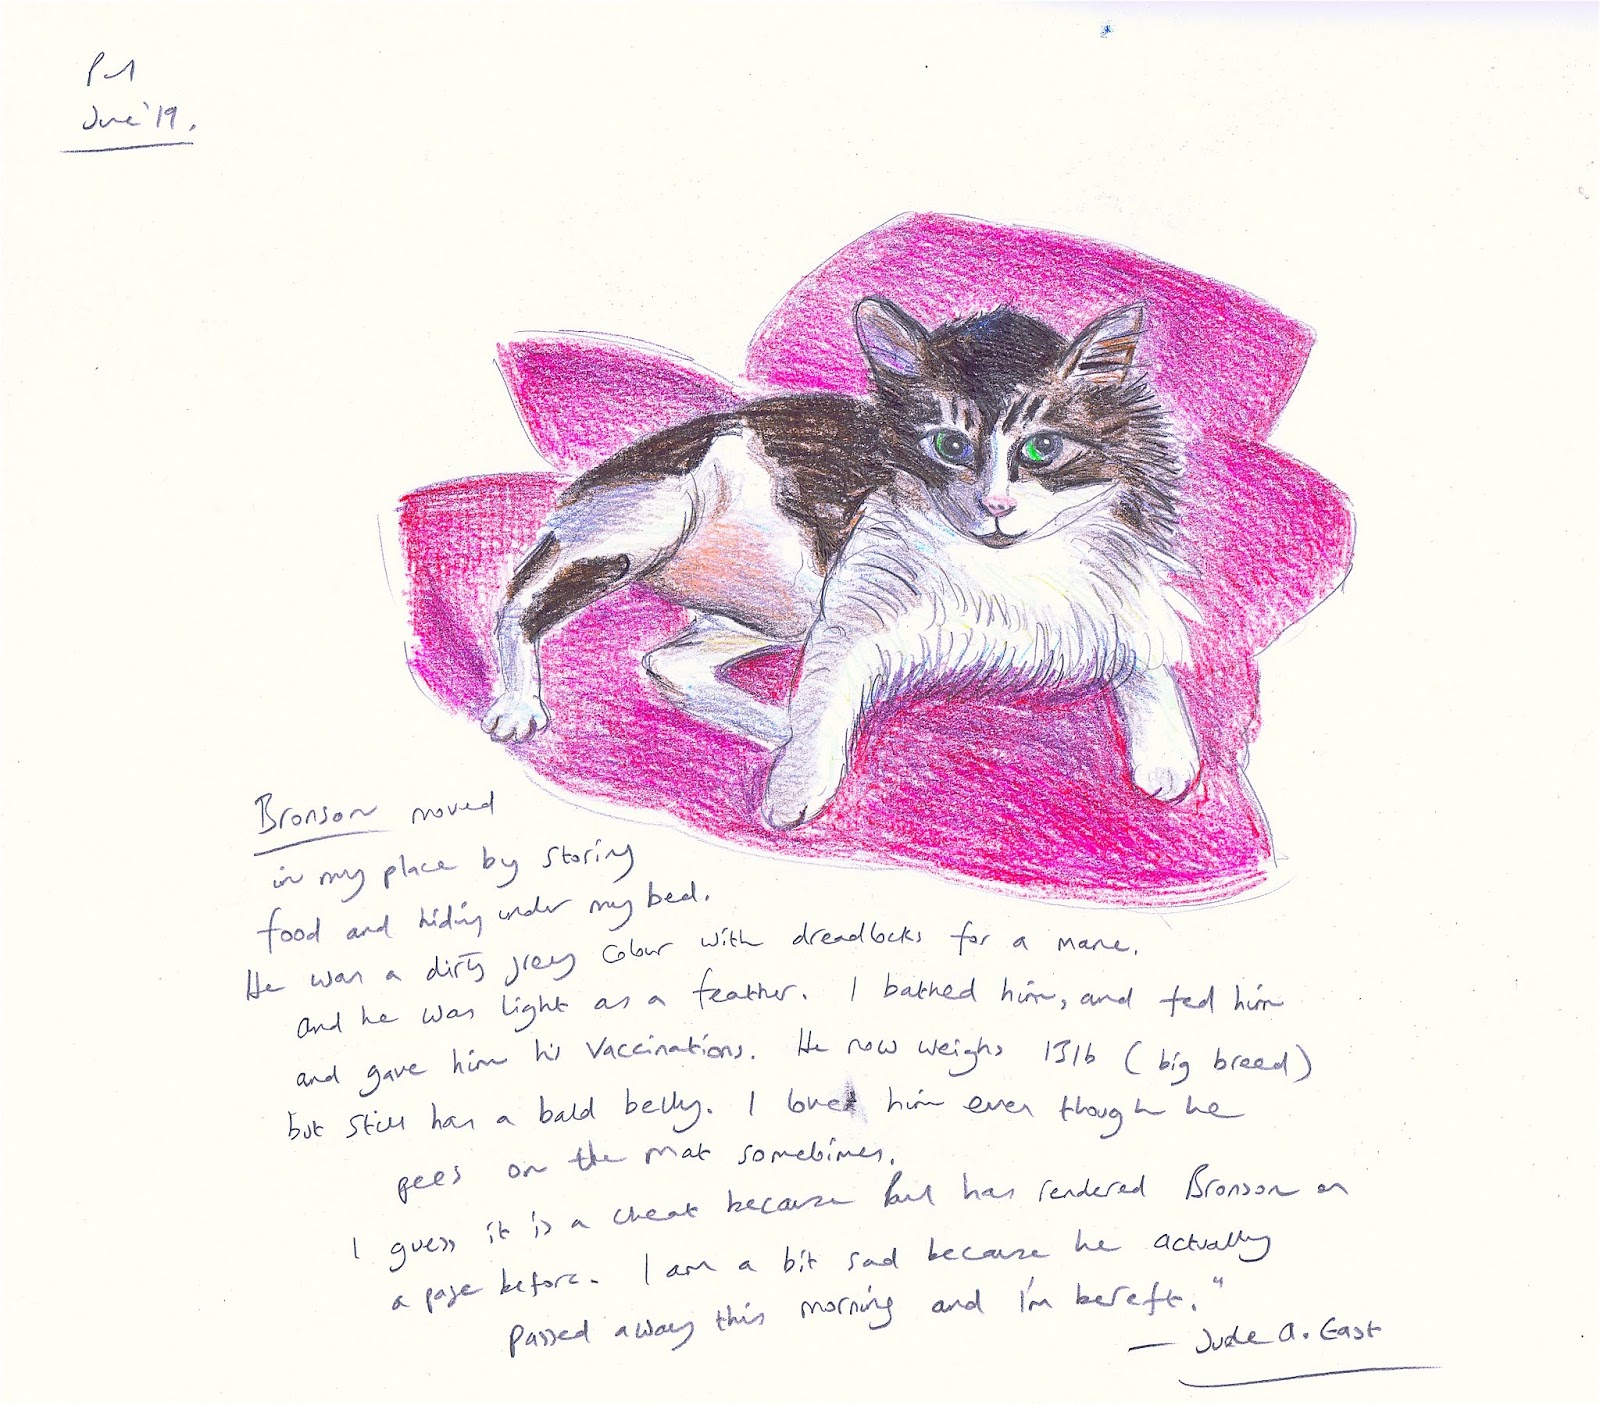 Paul
June '19.
Bronson moved
in my place by storing
food and hiding under my bed.
He was a dirty grey colour with dreadlocks for a mane.
and he was light as a feather. I bathed him, and fed him
and gave him his vaccinations. He now weighs 13lb (big breed)
but still has a bald belly. I loved him even though he
pees on the mat sometimes.
I guess it is a cheat because Paul has rendered Bronson on
a page before. I am a bit sad because he actually
passed away this morning and I'm bereft."
— Jude A. East